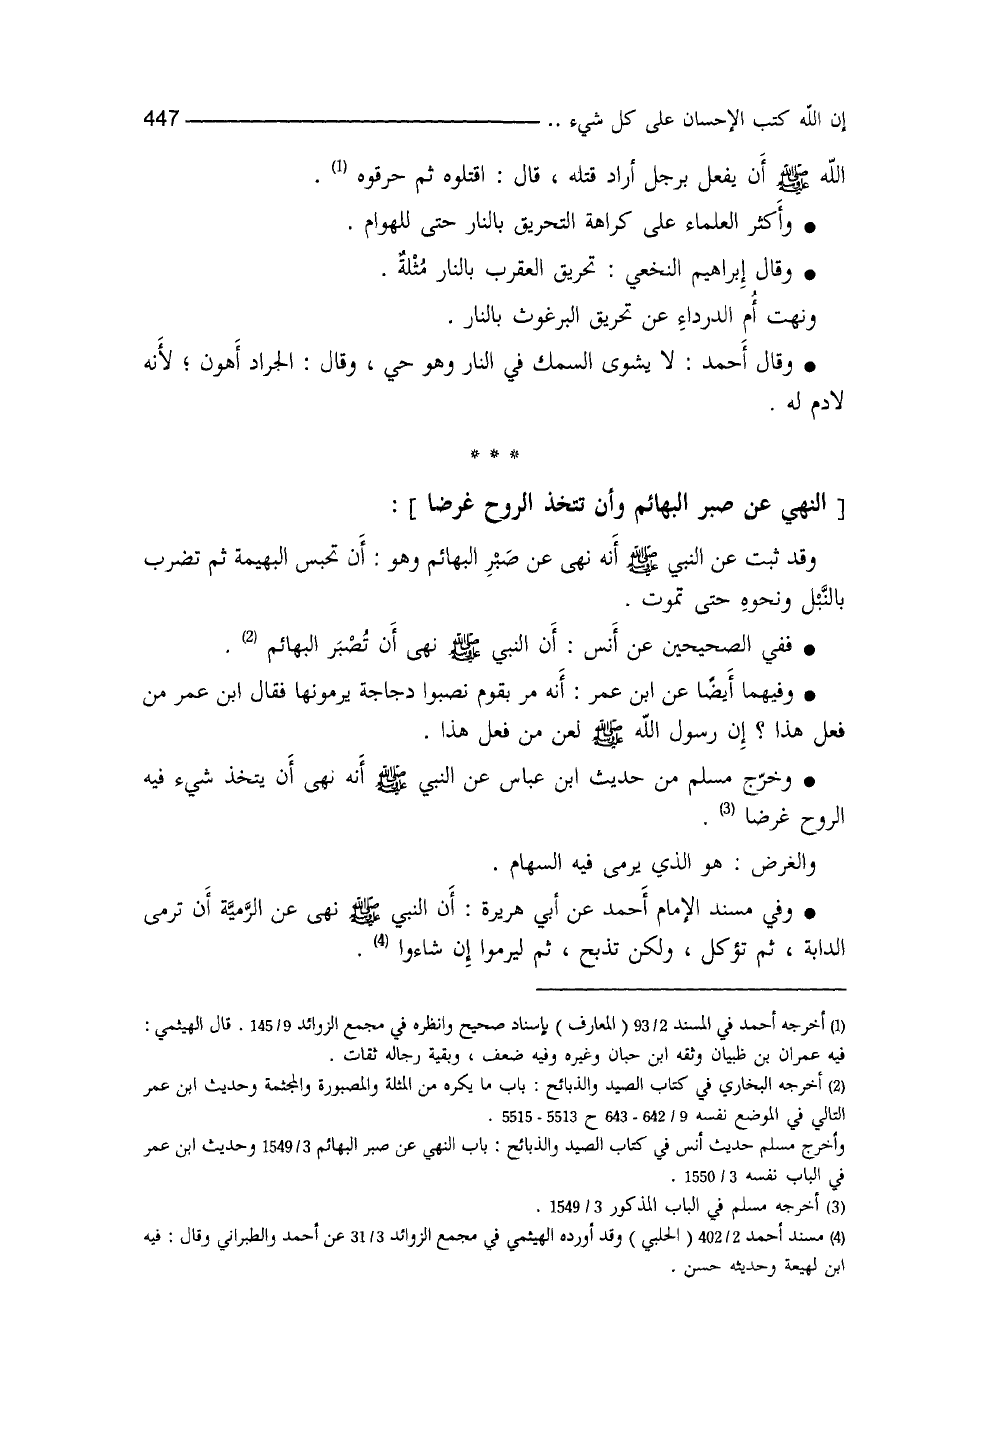 إن اللّه كتب الإحسان على كل شيء .. 447
اللّه ﷺ أَن يفعل برجل أراد قتله ، قال : اقتلوه ثم حرقوه (1) .
● وأَكثر العلماء على كراهة التحريق بالنار حتى للهوام .
● وقال إبراهيم النخعي : تحريق العقرب بالنار مُثْلةٌ .
ونهت أُم الدرداءِ عن تحريق البرغوث بالنار .
● وقال أَحمد : لا يشوى السمك في النار وهو حي ، وقال : الجراد أَهون ؛ لأَنه
لادم له .
* * *
[ النهي عن صبر البهائم وأن تتخذ الروح غرضا ] :
وقد ثبت عن النبي ﷺ أَنه نهى عن صَبْرِ البهائم وهو : أَن تحبس البهيمة ثم تضرب
بالنَّبْل ونحوهِ حتى تموت .
● ففي الصحيحين عن أَنس : أَن النبي ﷺ نهى أَن تُصْبَر البهائم (2) .
● وفيهما أَيضًا عن ابن عمر : أَنه مر بقوم نصبوا دجاجة يرمونها فقال ابن عمر من
فعل هذا ؟ إِن رسول اللّه ﷺ لعن من فعل هذا .
● وخرّج مسلم من حديث ابن عباس عن النبي ﷺ أَنه نهى أَن يتخذ شيء فيه
الروح غرضا (3) .
والغرض : هو الذي يرمى فيه السهام .
● وفي مسند الإمام أَحمد عن أبي هريرة : أَن النبي ﷺ نهى عن الرَّميَّة أَن ترمى
الدابة ، ثم تؤكل ، ولكن تذبح ، ثم ليرموا إِن شاءوا (4) .
(1) أخرجه أحمد في المسند 93/2 ( المعارف ) بإسناد صحيح وانظره في مجمع الزوائد 145/9 . قال الهيثمي :
فيه عمران بن ظبيان وثقه ابن حبان وغيره وفيه ضعف ، وبقية رجاله ثقات .
(2) أخرجه البخاري في كتاب الصيد والذبائح : باب ما يكره من المثلة والمصبورة والمجثمة وحديث ابن عمر
التالي في الموضع نفسه 9 / 642 - 643 ح 5513 - 5515 .
وأخرج مسلم حديث أنس في كتاب الصيد والذبائح : باب النهي عن صبر البهائم 1549/3 وحديث ابن عمر
في الباب نفسه 3 / 1550 .
(3) أخرجه مسلم في الباب المذكور 3 / 1549 .
(4) مسند أحمد 402/2 ( الحلبي ) وقد أورده الهيثمي في مجمع الزوائد 31/3 عن أحمد والطبراني وقال : فيه
ابن لهيعة وحديثه حسن .